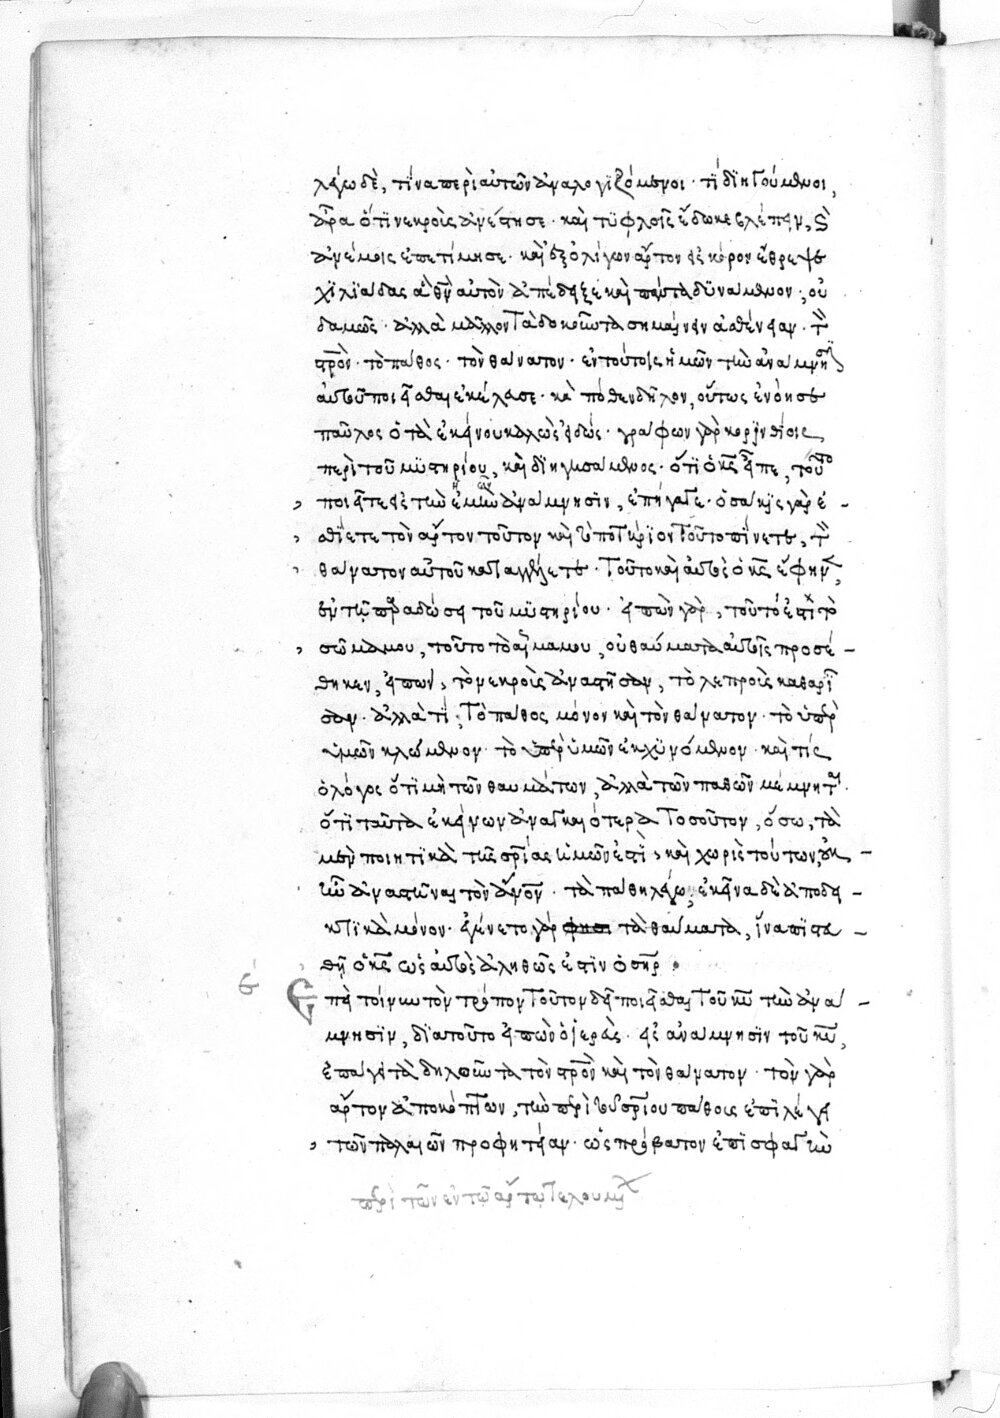 λέγω δὲ, τίνα περὶ αὐτῶν ἀναλογιζόμενοι· τί διηγούμενοι,
ἆρα ὅτι νεκροὺς ἀνέστησε· καὶ τυφλοῖς ἔδωκε βλέπειν, καὶ
ἀνέμοις ἐπετίμησε· καὶ ἐξ ὀλίγων ἄρτων εἰς κόρον ἔθρεψε
χιλιάδας ἃ θεὸν αὐτὸν ἀπέδειξε καὶ πάντα δυνάμενον; οὐ
δαμῶς· ἀλλὰ μᾶλλον τὰ δοκοῦντα σημαίνειν ἀσθένειαν· τὸν
σταυρὸν· τὸ πάθος· τὸν θάνατον· ἐν τούτοις ἡμῶν τὴν ἀνάμνησιν
αὐτοῦ ποιεῖσθαι ἐκέλευσε· καὶ πόθεν δῆλον, οὕτως ἐνόησε
παῦλος ὁ τὰ ἐκείνου καλῶς εἰδώς· γράφων γὰρ κορινθίοις
περὶ τοῦ μυστηρίου, καὶ διηγησάμενος· ὅτι ὁ κύριος εἶπε, τοῦτο
ποιεῖτε εἰς τὴν ἐμὴν ἀνάμνησιν, ἐπήγαγε· ὁσάκις γὰρ ἐ-
σθίετε τὸν ἄρτον τοῦτον καὶ τὸ ποτήριον τοῦτο πίνετε, τὸν
θάνατον αὐτοῦ καταγγέλλετε· τοῦτο καὶ αὐτὸς ὁ κύριος ἔφηνεν,
ἐν τῇ παραδώσει τοῦ μυστηρίου· εἰπὼν γὰρ, τοῦτό ἐστι τὸ
σῶμά μου, τοῦτο τὸ αἷμά μου, οὐ θαύματα αὐτοῖς προσέ-
θηκεν, εἰπὼν, τὸ νεκροὺς ἀναστῆσαν, τὸ λεπροὺς καθαρί
σαν· ἀλλὰ τί; τὸ πάθος μόνον καὶ τὸν θάνατον· τὸ ὑπὲρ
ὑμῶν κλώμενον· τὸ ὑπὲρ ὑμῶν ἐκχυνόμενον· καὶ τίς
ὁ λόγος ὅτι μὴ τῶν θαυμάτων, ἀλλὰ τῶν παθῶν μέμνηται·
ὅτι ταῦτα ἐκείνων ἀναγκαιότερα τοσοῦτον, ὅσῳ, τὰ
μὲν ποιητικὰ τῆς σωτηρίας ἡμῶν ἐστὶ, καὶ χωρὶς τούτων, οὐκ
ἦν ἀναστῆναι τὸν ἄνθρωπον· τὰ πάθη λέγω, ἐκεῖνα δὲ ἀποδει-
κτικὰ μόνον· ἐγένετο γὰρ τὰ θαύματα, ἵνα πιστευ-
θῇ ὁ κύριος ὡς αὐτὸς ἀληθῶς ἐστὶν ὁ σωτήρ.
Ἐπεὶ τοίνυν τὸν τρόπον τοῦτον δεῖ ποιεῖσθαι τοῦ κυρίου τὴν ἀνά-
μνησιν, διὰ τοῦτο εἰπὼν ὁ ἱερεὺς· εἰς ἀνάμνησιν τοῦ κυρίου,
ἐπάγει τὰ δηλοῦντα τὸν σταυρὸν καὶ τὸν θάνατον· τὸν γὰρ
ἄρτον ἀποκόπτων, τὴν περὶ τοῦ σωτηρίου πάθους ἐπιλέγει
τῶν παλαιῶν προφητείαν· ὡς πρόβατον ἐπὶ σφαγὴν
περὶ τῶν ἐν τῷ ἄρτῳ τελουμένων